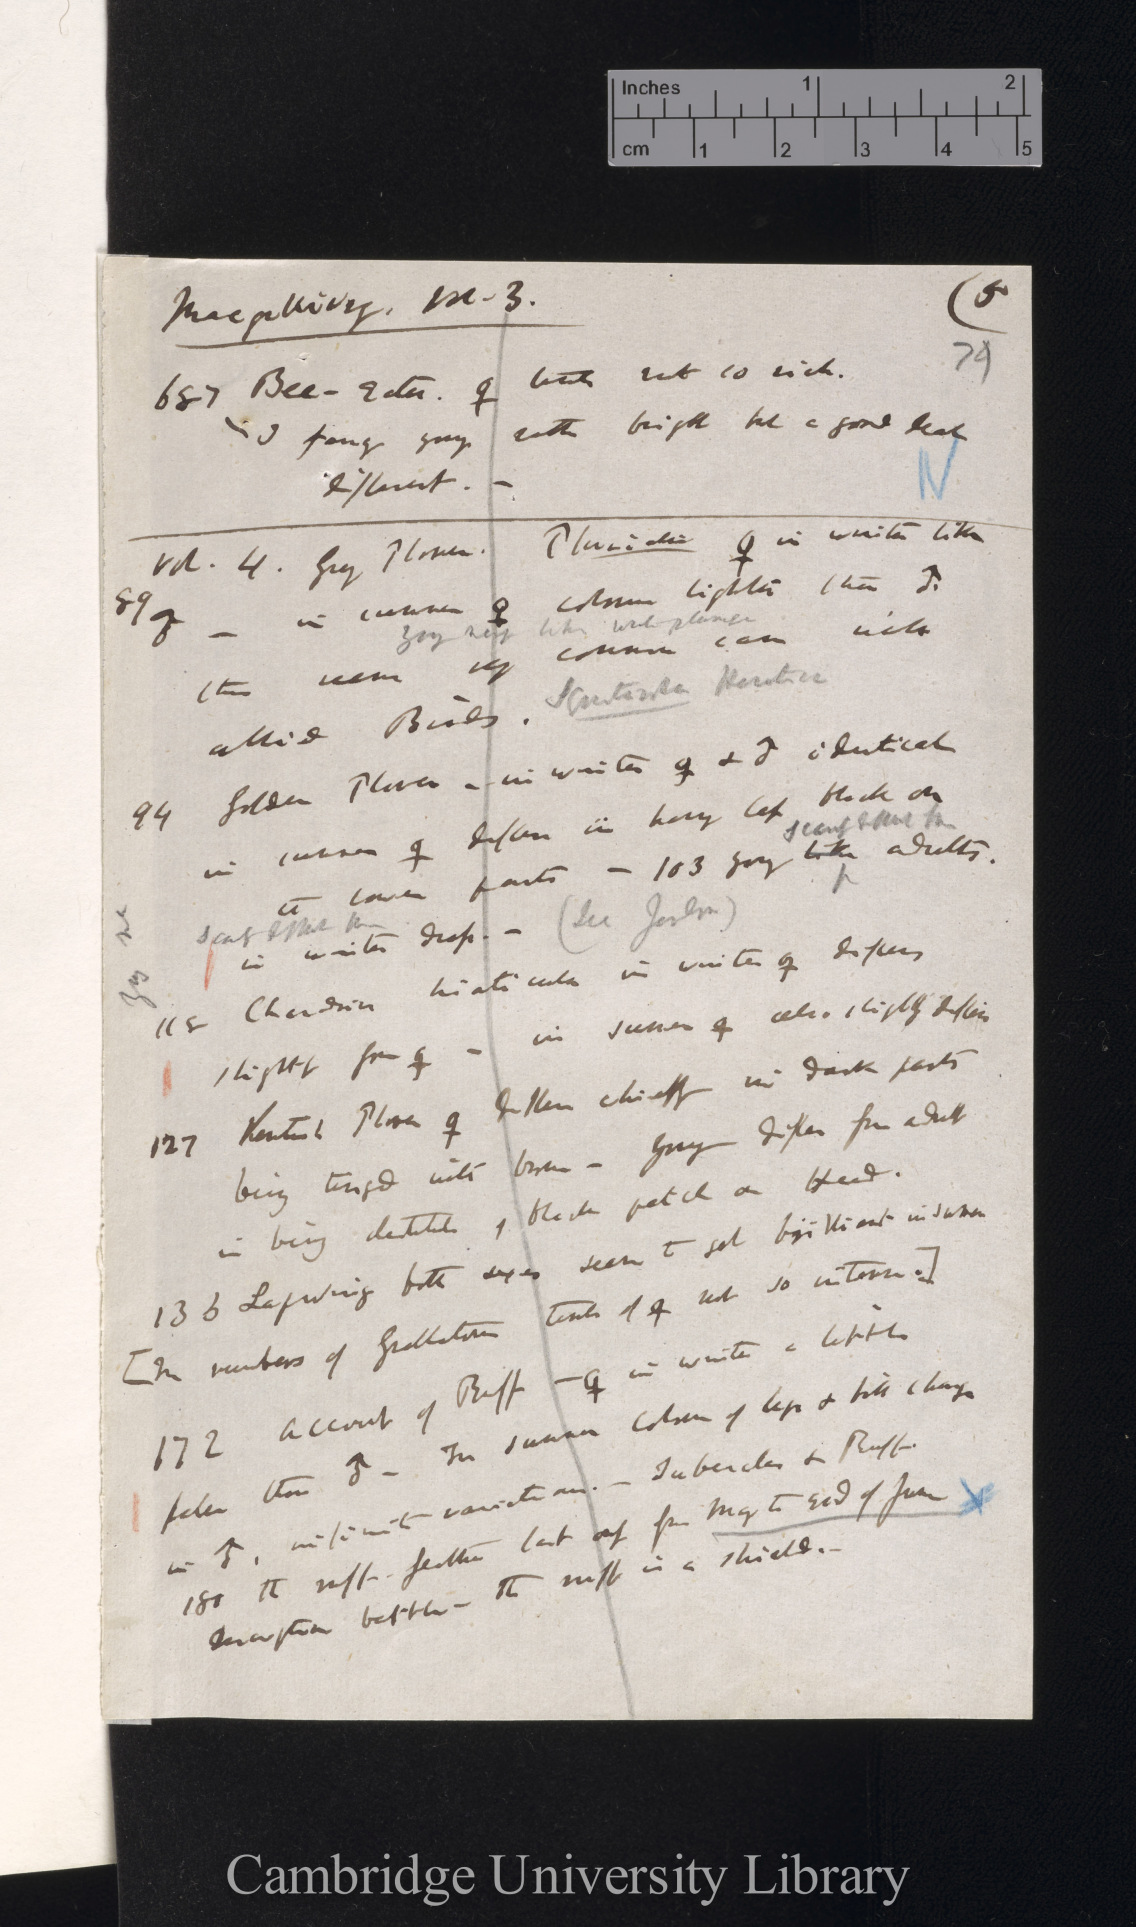 Inches 1 2
cm 1 2 3 4 5
Macgillivray. Vol-3.
(5
79
687 Bee-Eater. ♀ tints not so rich.
♂ young rather bright but a good deal
different. —
N
Vol. 4. Grey Plover. Pluvialis ♀ in winter like
89 ♂ — in summer ♀ colour lighter than ♂.
Young very like winter plumage
this seems very common case with
allied Birds. Squatarola Helvetica
94 Golden Plover — in winter ♀ & ♂ identical
in summer ♀ differ in having less black on
scarcely differ from
the lower parts — 103 young like adults.
scarcely differ from
in winter dress. — (See Jerdon)
118 Charadrius hiaticula in winter ♀ differs
slightly from ♀ — in summer ♀ also slightly differs
127 Kentish Plover ♀ differs chiefly in dark parts
being tinged with brown — Young differ from adult
in being destitute of black patch on Head.
136 Lapwing both sexes seem to get brilliant in summer
[In numbers of Grallatores tints of ♀ not so intense.]
172 Account of Ruff — ♀ in winter a little
paler than ♂ — In summer colour of legs & bill change
in ♂, infinite variation. — Tubercles & Ruff.
180 The ruff-feathers last only from May to End of June
Description battle — The ruff is a shield. —
Cambridge University Library